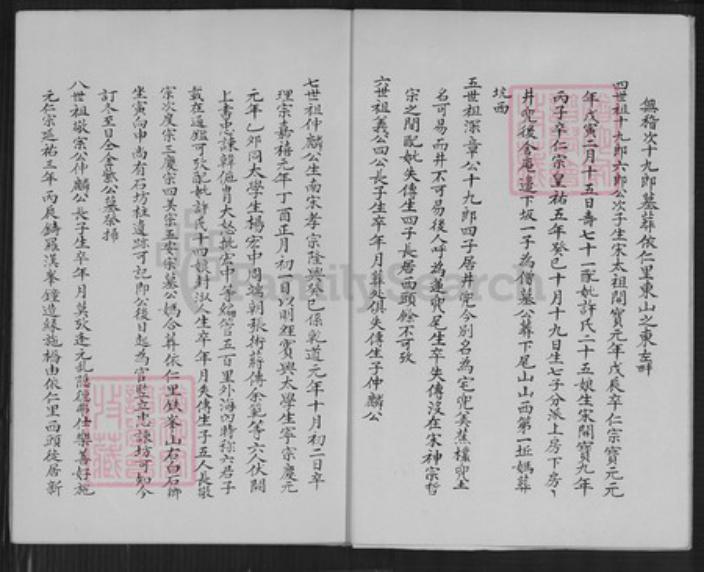 無稽次十九郎墓葬依仁里東山之東左畔
四世祖十九郎六郎公次子生宋太祖開寶元年戊辰卒仁宗寶元元
年戊寅二月十五日壽七十一配妣許氏二十五娘生宋開寶九年
丙子卒仁宗皇祐五年癸巳十月十九日生七子分派上房下房
井兜後令庵邊下坂一子為僧墓公葬下尾山山西第一坵媽葬
坑西
五世祖深章公十九郎四子居井兜今別名為宅兜美蕉樓兜
名可易而井不可易後人呼為蓮兜尾生卒失傳沒在宋神宗哲
宗之間配妣失傳生四子長居西頭餘不可攷
六世祖義公四公長子生卒年月葬處俱失傳生子仲麟公
七世祖仲麟公生南宋孝宗隆興癸巳係乾道元年十月初二日卒
理宗嘉禧元年丁酉正月初一日以明經賓興太學生寧宗慶元
元年乙卯同太學生楊宏中周端朝張衜蔣傳余範等六人伏闕
上書忠諫韓侂冑大怒批宏中等編管五百里外海四時稱六君子
載在通鑑可攷配妣許氏十四娘封淑人生卒年月失傳生子五人長敬
宗次度宗三慶宗四美宗五安宗墓公媽合葬依仁里鉄峯山右白石鄉
坐寅向申尚有石坊柱遺跡可記即公後日起為官監立忠諫坊可知今
訂冬至日全金紫公墓祭掃
八世祖敬宗公仲麟公長子生卒年月莫攷逢元乱隱德弗仕樂善好施
元仁宗延祐三年丙辰鑄羅漢峯鐘造綠施橋由依仁里西頭徙居新
FamilySearch